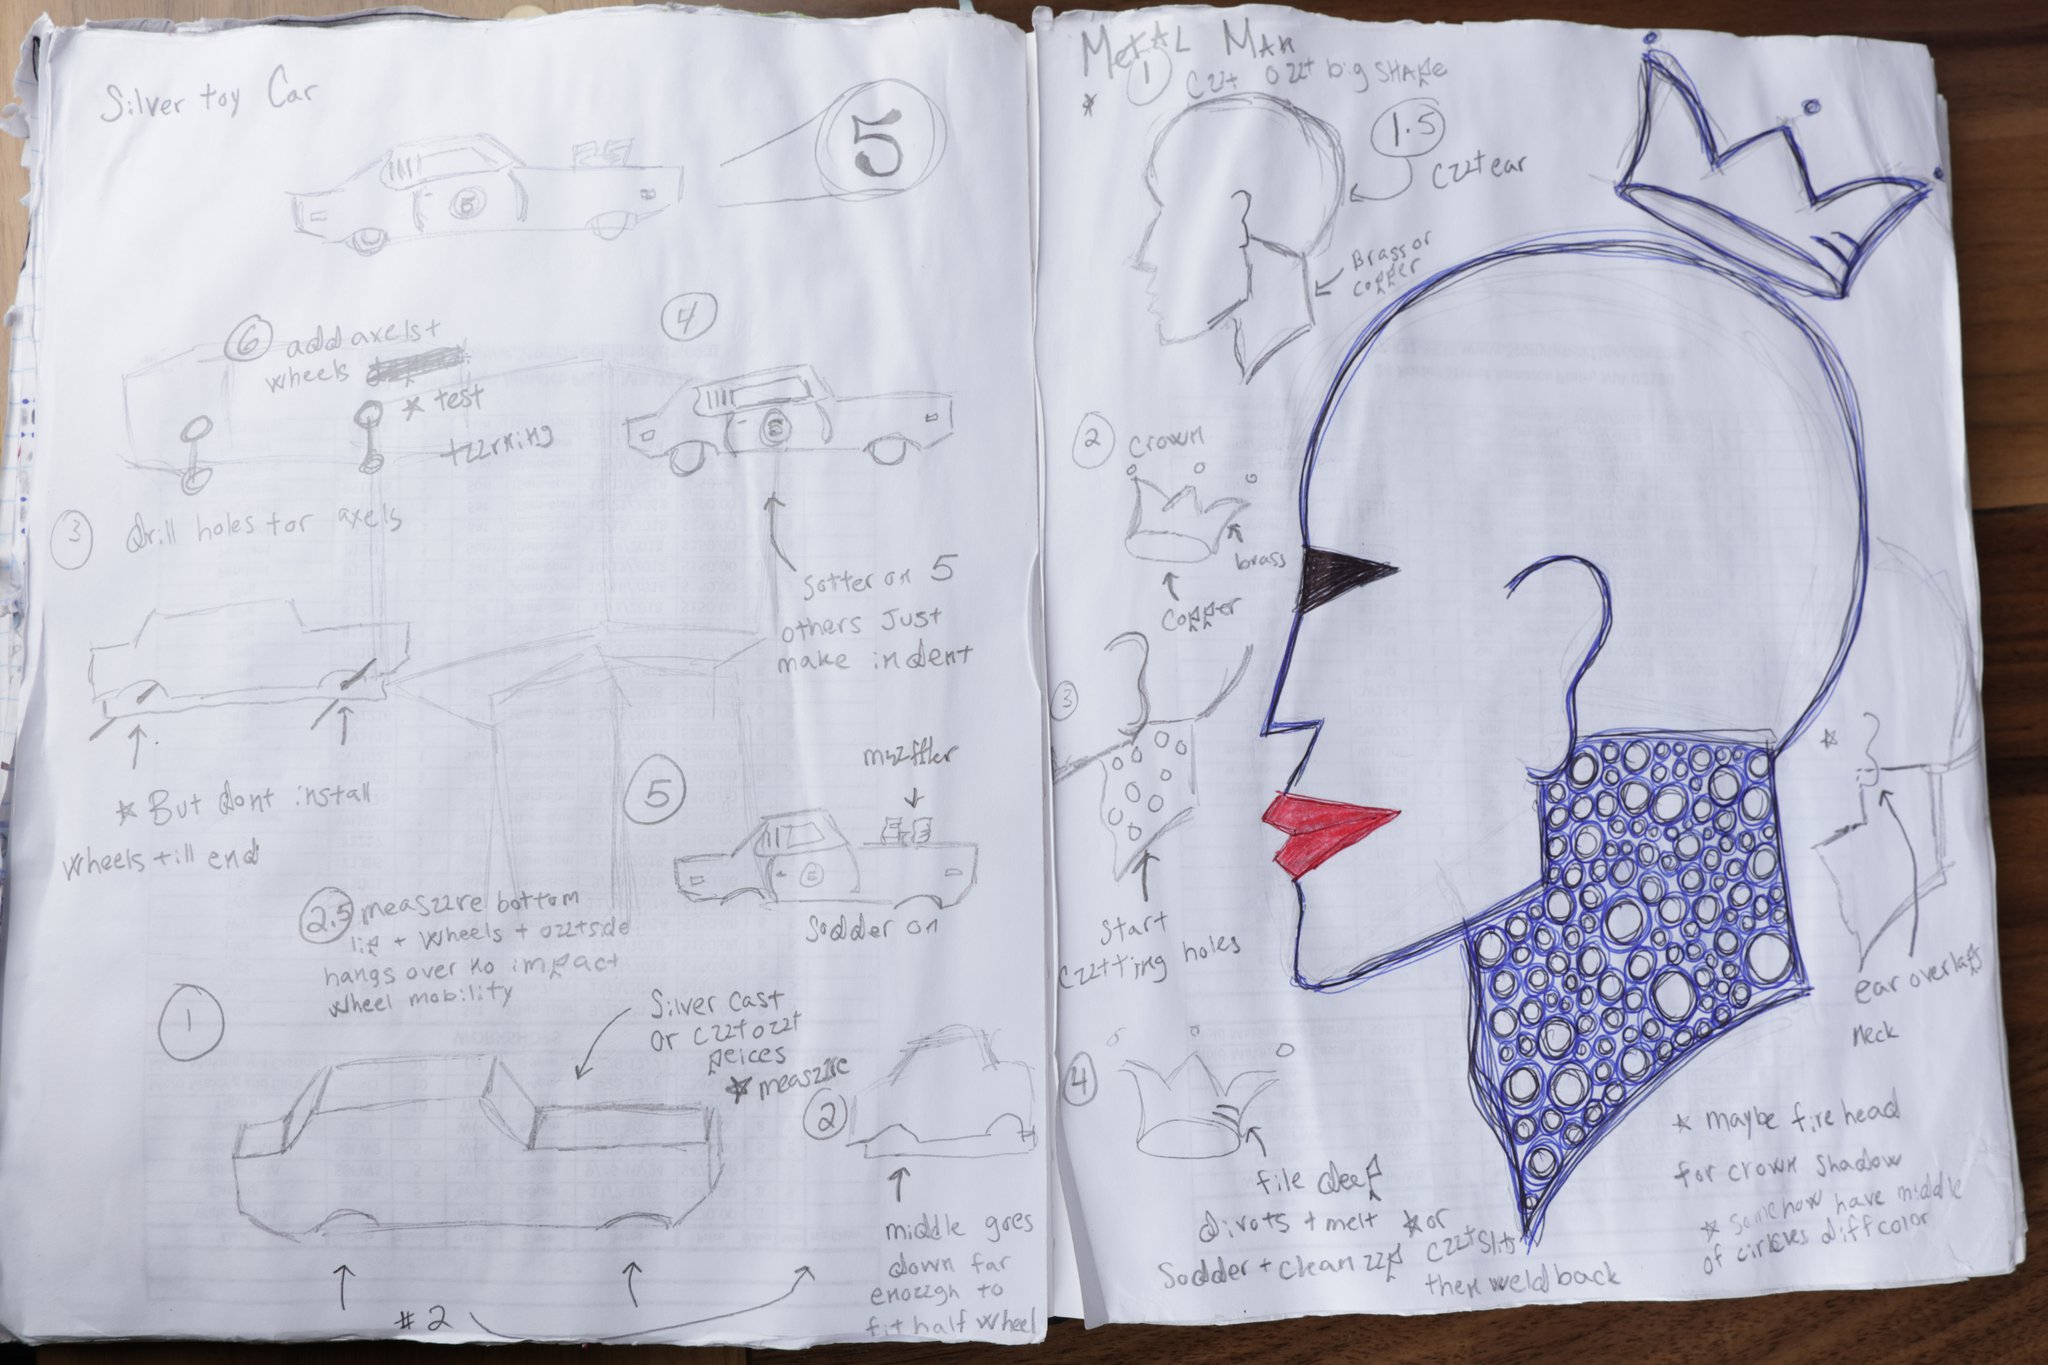 Silver toy Car
5
5
6 add axels +
wheels
* test
turning
4
5
sotter on 5
others Just
make indent
3 drill holes for axels
* But dont install
wheels till end
5
muffler
Sodder on
2.5 measure bottom
lip + wheels + outside
hangs over no impact
wheel mobility
1
Silver cast
or cut out
peices
* measure
2
middle goes
down far
enough to
fit half wheel
#2
METAL MAN
* 1 Cut out big SHAPe
1.5
Cut ear
Brass or
copper
2 crown
brass
Copper
3
Start
cutting holes
*
ear overlaps
neck
4
file deep
divots + melt
Sodder + clean up
* or
cut slits
then weld back
* maybe fire head
for crown shadow
* somehow have middle
of cirkles diff color